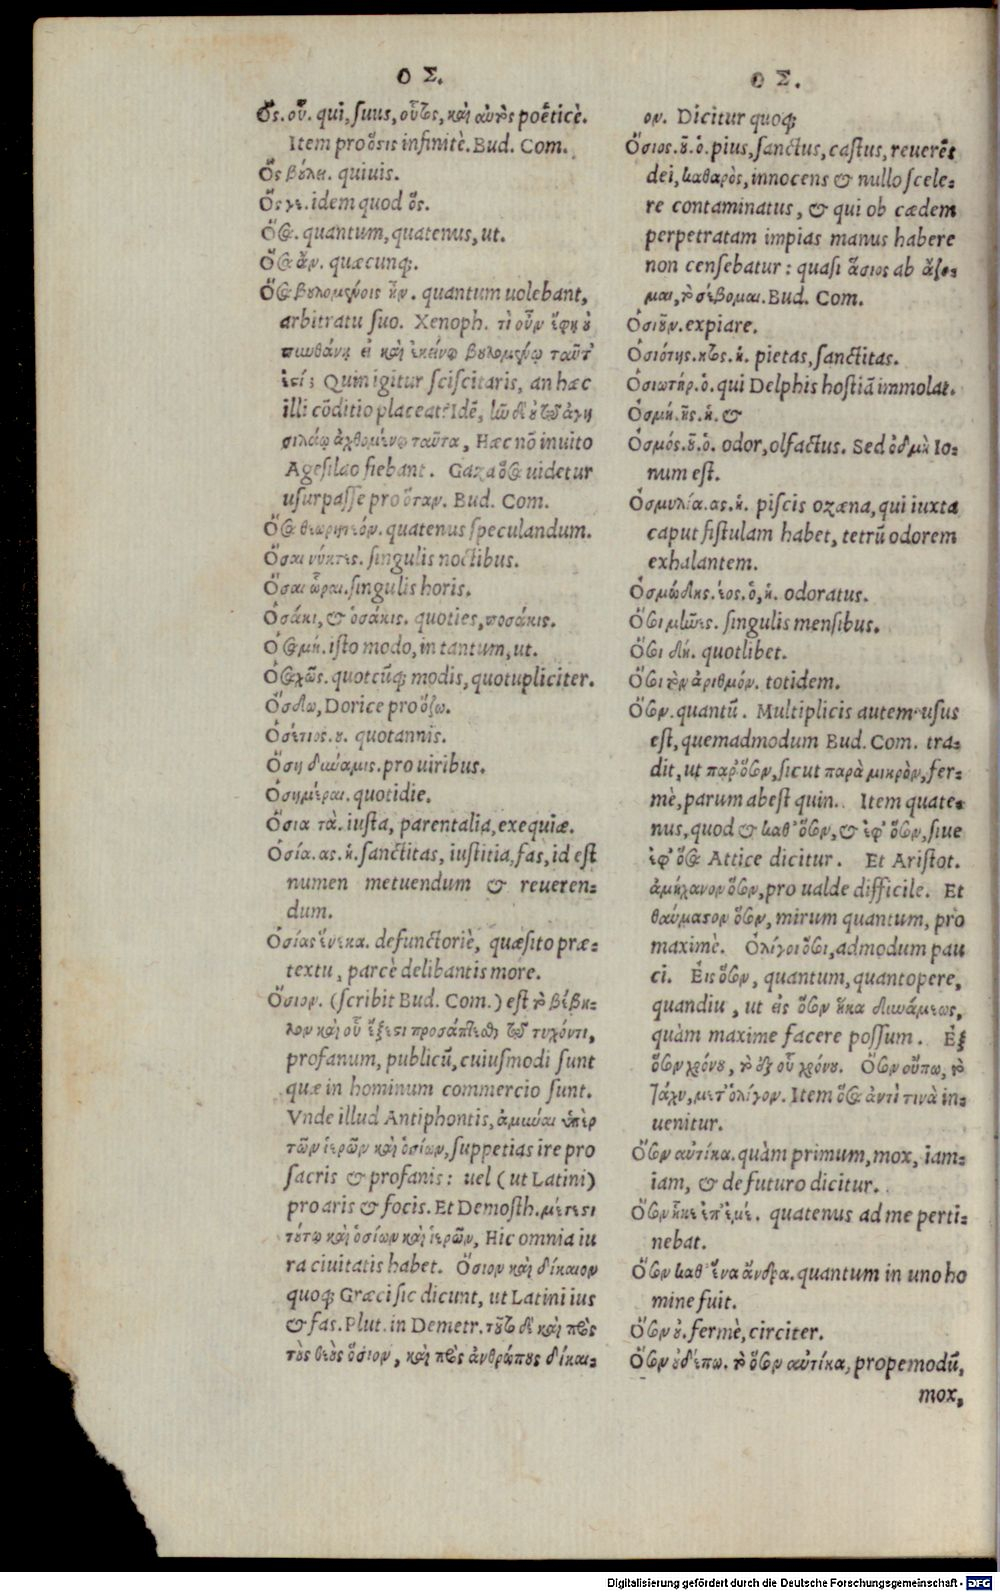 Ο Σ.
Ὃς. οὗ. qui, suus, οὗτος, καὶ αὐτὸς poëticè.
Item pro ὅστις infinitè. Bud. Com.
Ὃς βύλει. quiuis.
Ὅς γε. idem quod ὅς.
Ὅσα. quantum, quatenus, ut.
Ὅσα ἄν. quæcunq;.
Ὅσα βυλομένοις ἦν. quantum uolebant,
arbitratu suo. Xenoph. τί οὖν ἔφη ὐ
πυνθάνῃ εἰ καὶ ἐκείνῳ βυλομένῳ ταῦτ'
ἐστί; Quin igitur sciscitaris, an hæc
illi cõditio placeat? Idẽ, ἦν δὲ ὐ τῷ ἀγη
σιλάῳ ἀχθομένῳ ταῦτα, Hæc nõ inuito
Agesilao fiebant. Gaza ὅσα uidetur
usurpasse pro ὅταν. Bud. Com.
Ὅσα θεωρητέον. quatenus speculandum.
Ὅσαι νύκτες. singulis noctibus.
Ὅσαι ὧραι. singulis horis.
Ὁσάκι, & ὁσάκις. quoties, ποσάκις.
Ὁσαμῆ. isto modo, in tantum, ut.
Ὁσαχῶς. quotcũq; modis, quotupliciter.
Ὅσδω, Dorice pro ὄζω.
Ὁσέτιος. υ. quotannis.
Ὅση δύναμις. pro uiribus.
Ὁσημέραι. quotidie.
Ὅσια τὰ. iusta, parentalia, exequiæ.
Ὁσία. ας. ἡ. sanctitas, iustitia, fas, id est
numen metuendum & reueren-
dum.
Ὁσίας ἕνεκα. defunctoriè, quæsito præ-
textu, parcè delibantis more.
Ὅσιον. (scribit Bud. Com.) est τὸ βέβη-
λον καὶ οὗ ἔξεστι προσάπτεσθαι τῷ τυχόντι,
profanum, publicũ, cuiusmodi sunt
quæ in hominum commercio sunt.
Vnde illud Antiphontis, ἀμῦναι ὑπὲρ
τῶν ἱερῶν καὶ ὁσίων, suppetias ire pro
sacris & profanis: uel (ut Latini)
pro aris & focis. Et Demosth. μέτεστι
τύτῳ καὶ ὁσίων καὶ ἱερῶν, Hic omnia iu
ra ciuitatis habet. Ὅσιον καὶ δίκαιον
quoq; Græci sic dicunt, ut Latini ius
& fas. Plut. in Demetr. τῦτο δὲ καὶ πρὸς
τὺς θεὺς ὅσιον, καὶ πρὸς ἀνθρώπυς δίκαι-
Ο Σ.
ον. Dicitur quoq;
Ὅσιος. υ. ὁ. pius, sanctus, castus, reuerẽs
dei, καθαρὸς, innocens & nullo scele-
re contaminatus, & qui ob cædem
perpetratam impias manus habere
non censebatur: quasi ἅσιος ab ἄζο-
μαι, τὸ σέβομαι. Bud. Com.
Ὁσιῦν. expiare.
Ὁσιότης. ητος. ἡ. pietas, sanctitas.
Ὁσιωτήρ. ὁ. qui Delphis hostiã immolat.
Ὀσμή. ῆς. ἡ. &
Ὀσμός. ῦ. ὁ. odor, olfactus. Sed ὀδμὴ Io-
num est.
Ὀσμυλία. ας. ἡ. piscis ozæna, qui iuxta
caput fistulam habet, tetrũ odorem
exhalantem.
Ὀσμώδης. έος. ὁ, ἡ. odoratus.
Ὅσοι μῆνες. singulis mensibus.
Ὅσοι δή. quotlibet.
Ὅσοι τὸν ἀριθμόν. totidem.
Ὅσον. quantũ. Multiplicis autem usus
est, quemadmodum Bud. Com. tra-
dit, ut παρ' ὅσον, sicut παρὰ μικρὸν, fer-
mè, parum abest quin. Item quate-
nus, quod & καθ' ὅσον, & ἐφ' ὅσον, siue
ἐφ' ὅσα Attice dicitur. Et Aristot.
ἀμήχανον ὅσον, pro ualde difficile. Et
θαύμαστον ὅσον, mirum quantum, pro
maximè. Ὀλίγοι ὅσοι, admodum pau
ci. Εἰς ὅσον, quantum, quantopere,
quandiu, ut εἰς ὅσον ἧκα δυνάμεως,
quàm maxime facere possum. Ἐξ
ὅσον χρόνυ, τὸ ἐξ οὗ χρόνυ. Ὅσον οὔπω, τὸ
τάχυ, μετ' ὀλίγον. Item ὅσα ἀντὶ τινὰ in-
uenitur.
Ὅσον αὐτίκα. quàm primum, mox, iam-
iam, & de futuro dicitur.
Ὅσον ἧκε ἐπ' ἐμέ. quatenus ad me perti-
nebat.
Ὅσον καθ' ἕνα ἄνδρα. quantum in uno ho
mine fuit.
Ὅσον ὐ. fermè, circiter.
Ὅσον ὐδέπω. τὸ ὅσον αὐτίκα, propemodũ,
mox,
Digitalisierung gefördert durch die Deutsche Forschungsgemeinschaft - DFG